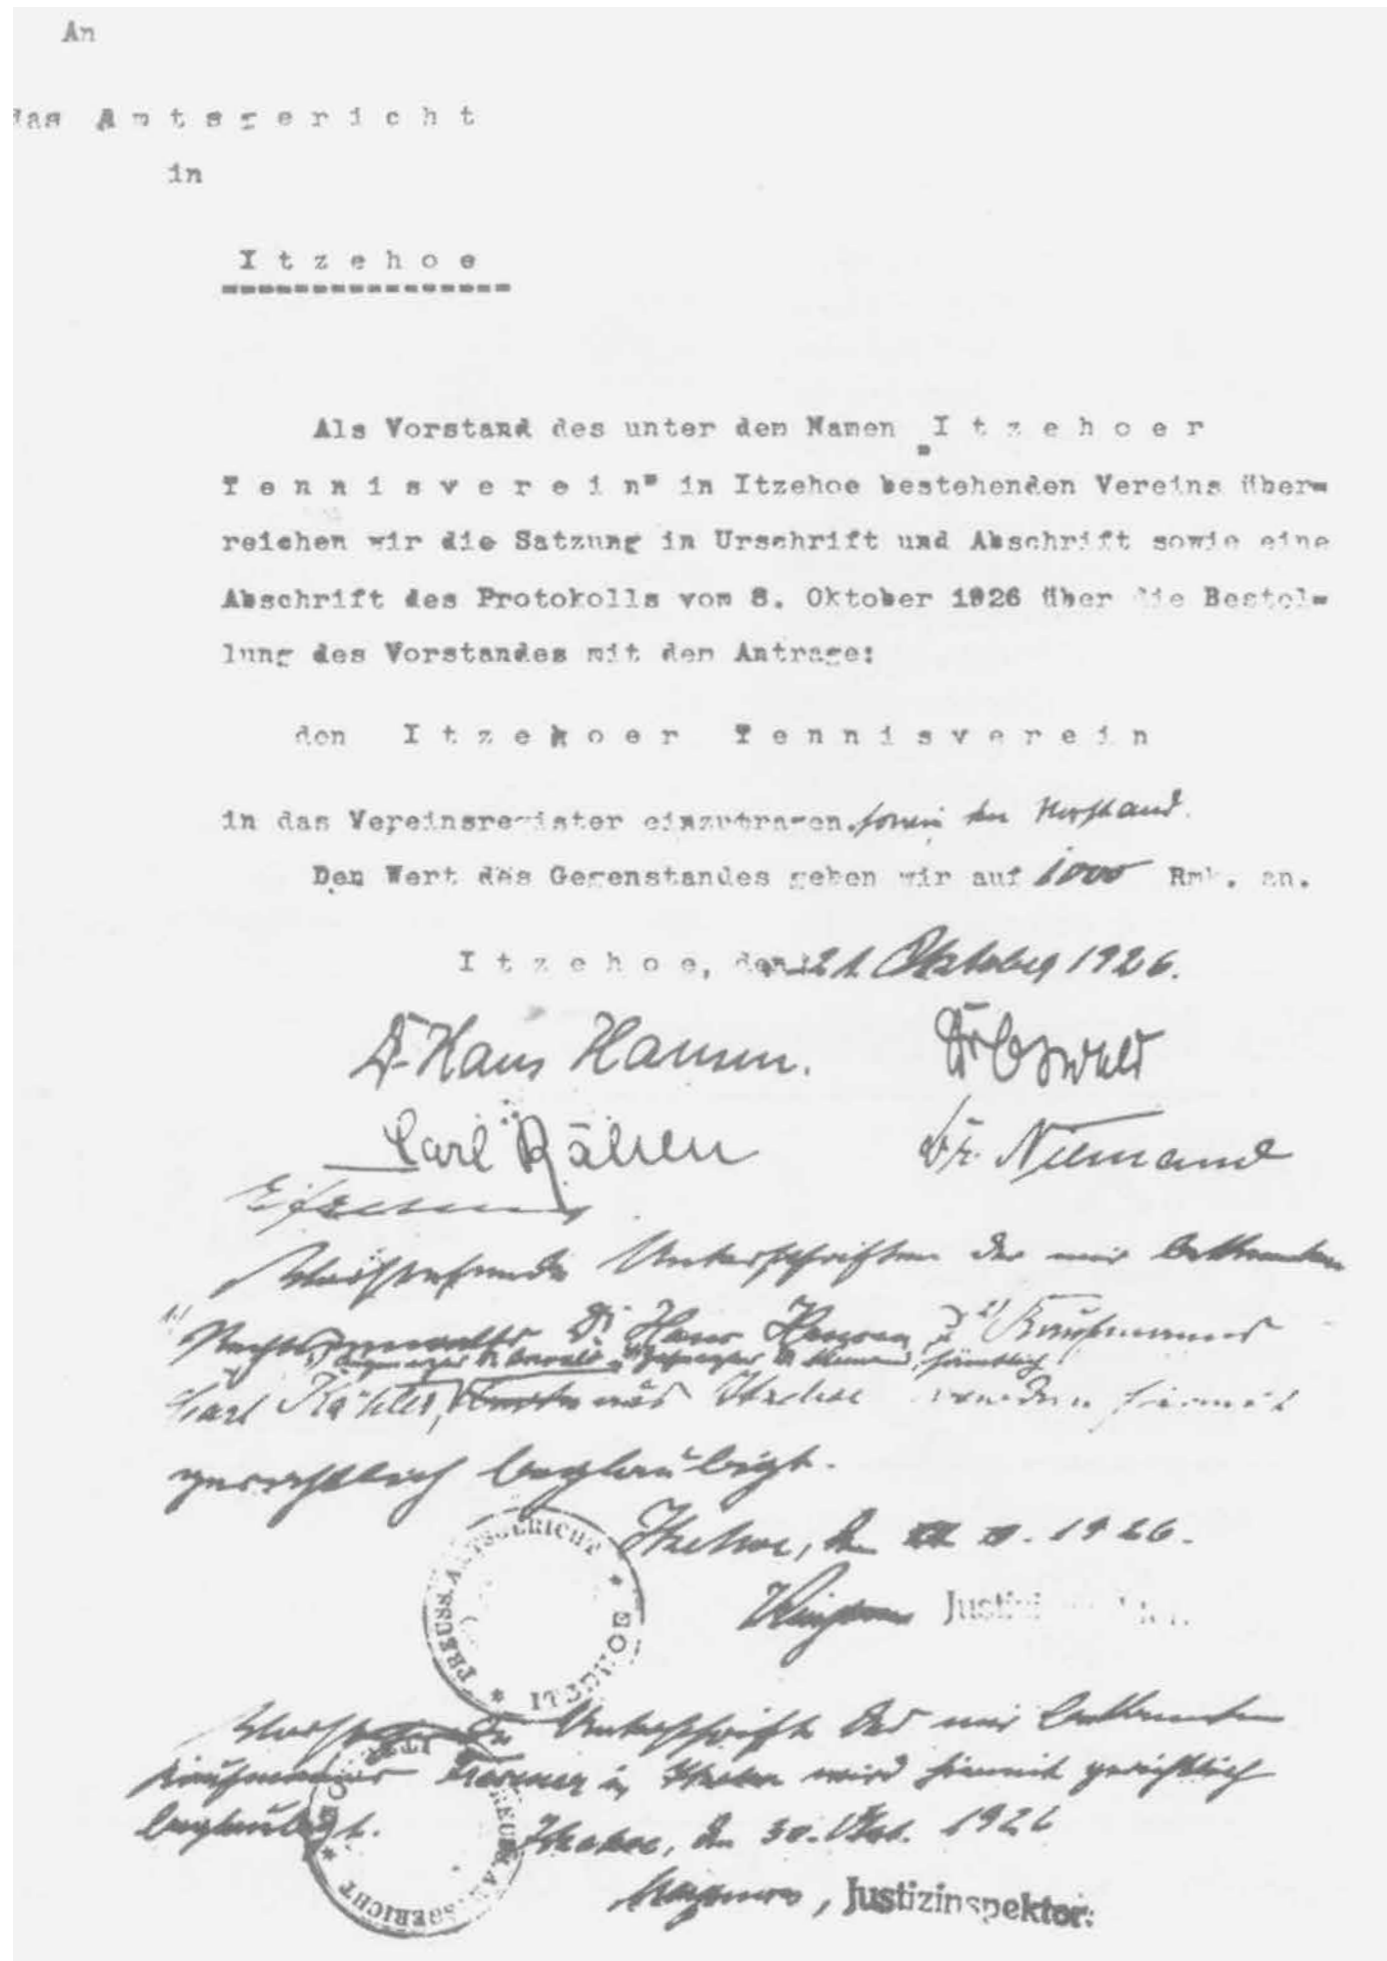 An
das Amtsgericht
in
Itzehoe
Als Vorstand des unter dem Namen "Itzehoer
Tennisverein" in Itzehoe bestehenden Vereins über=
reichen wir die Satzung in Urschrift und Abschrift sowie eine
Abschrift des Protokolls vom 8. Oktober 1926 über die Bestel=
lung des Vorstandes mit dem Antrage:
den Itzehoer Tennisverein
in das Vereinsregister einzutragen, sowie den Vorstand.
Den Wert des Gegenstandes geben wir auf 1000 Rmk. an.
Itzehoe, den 21. Oktober 1926.
Dr. Hans Hansen. Dr Oswald
Carl Dr. Niemand
Vorstehende Unterschriften der mir bekannten
1) Rechtsanwalts Dr Hans Hansen 2) Kaufmanns
Carl Kähler, aus Itzehoe werden hiermit
gerichtlich beglaubigt.
PREUSS. AMTSGERICHT * ITZEHOE *
Itzehoe, den 1926.
Vorstehende Unterschrift des mir bekannten
Kaufmanns in Itzehoe wird hiermit gerichtlich
beglaubigt. Itzehoe, den 30. Okt. 1926
PREUSS. AMTSGERICHT * ITZEHOE *
Justizinspektor.